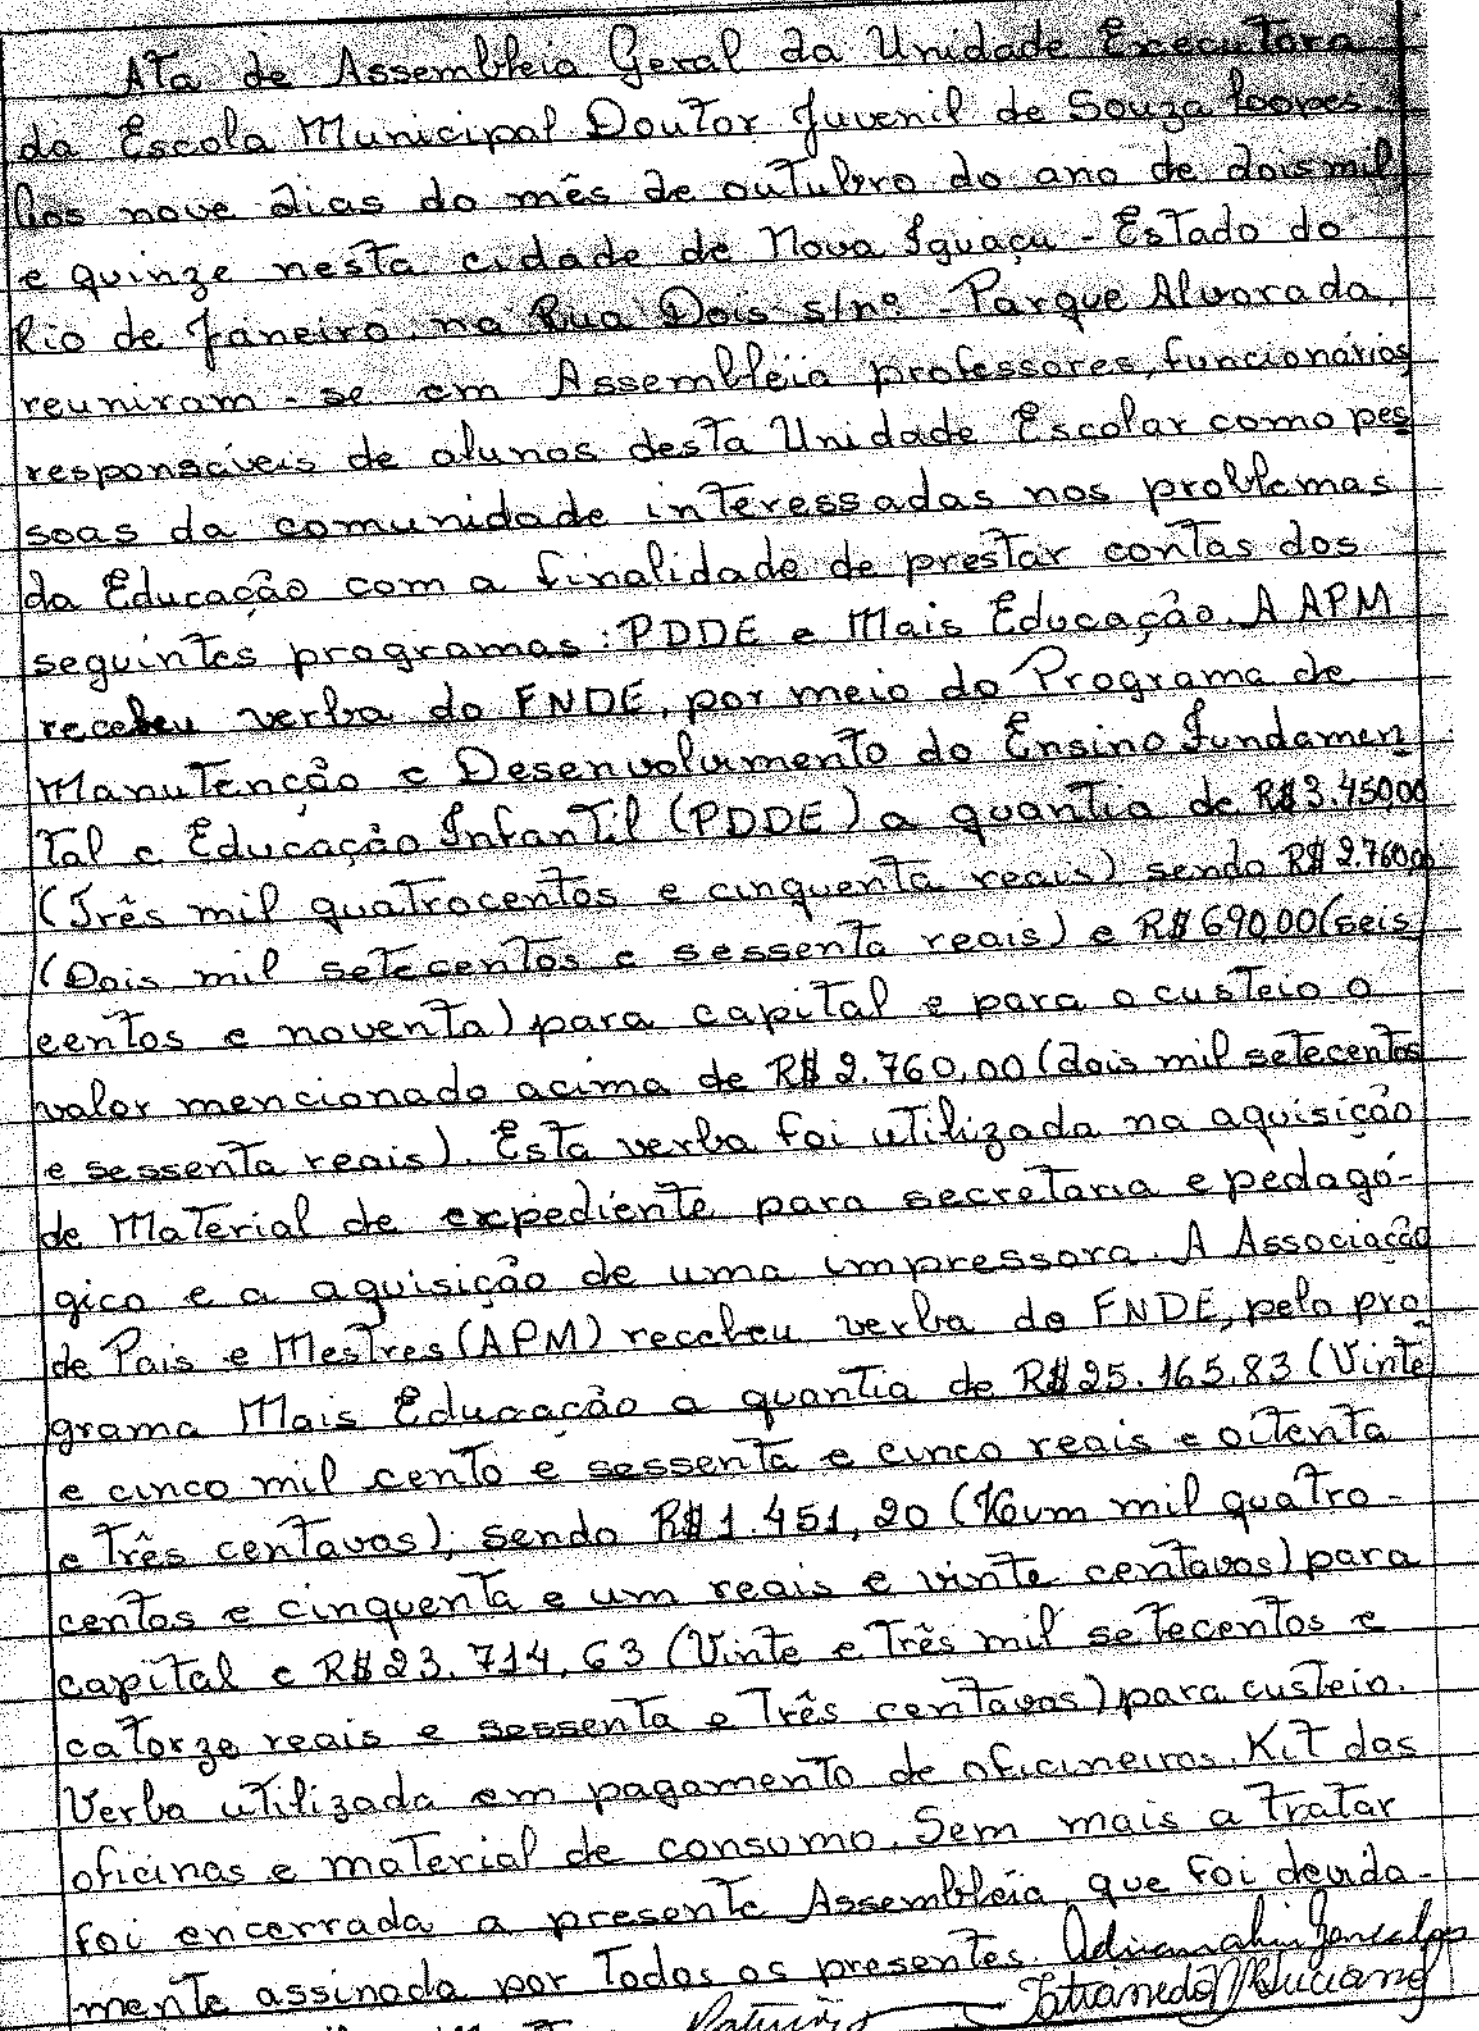 Ata de Assembleia Geral da Unidade Executora
da Escola Municipal Doutor Juvenil de Souza Lopes.
Aos nove dias do mês de outubro do ano de dois mil
e quinze nesta cidade de Nova Iguaçu - Estado do
Rio de Janeiro, na Rua Dois s/nº - Parque Alvorada,
reuniram-se em Assembléia professores, funcionários,
responsáveis de alunos desta Unidade Escolar como pes
soas da comunidade interessadas nos problemas
da Educação com a finalidade de prestar contas dos
seguintes programas: PDDE e Mais Educação. A APM
recebeu verba do FNDE, por meio do Programa de
Manutenção e Desenvolvimento do Ensino Fundamen
tal e Educação Infantil (PDDE) a quantia de R$ 3.450,00
(Três mil quatrocentos e cinquenta reais) sendo R$ 2.760,00
(Dois mil setecentos e sessenta reais) e R$ 690,00 (seis
centos e noventa) para capital e para o custeio o
valor mencionado acima de R$ 2.760,00 (dois mil setecentos
e sessenta reais). Esta verba foi utilizada na aquisição
de Material de expediente para secretaria e pedagó-
gico e a aquisição de uma impressora. A Associação
de Pais e Mestres (APM) recebeu verba do FNDE, pelo pro
grama Mais Educação a quantia de R$ 25.165,83 (Vinte
e cinco mil cento e sessenta e cinco reais e oitenta
e três centavos), sendo R$ 1.451,20 (Hum mil quatro-
centos e cinquenta e um reais e vinte centavos) para
capital e R$ 23.714,63 (Vinte e três mil setecentos e
catorze reais e sessenta e três centavos) para custeio.
Verba utilizada em pagamento de oficineiros, Kit das
oficinas e material de consumo. Sem mais a tratar
foi encerrada a presente Assembléia, que foi devida-
mente assinada por todos os presentes.